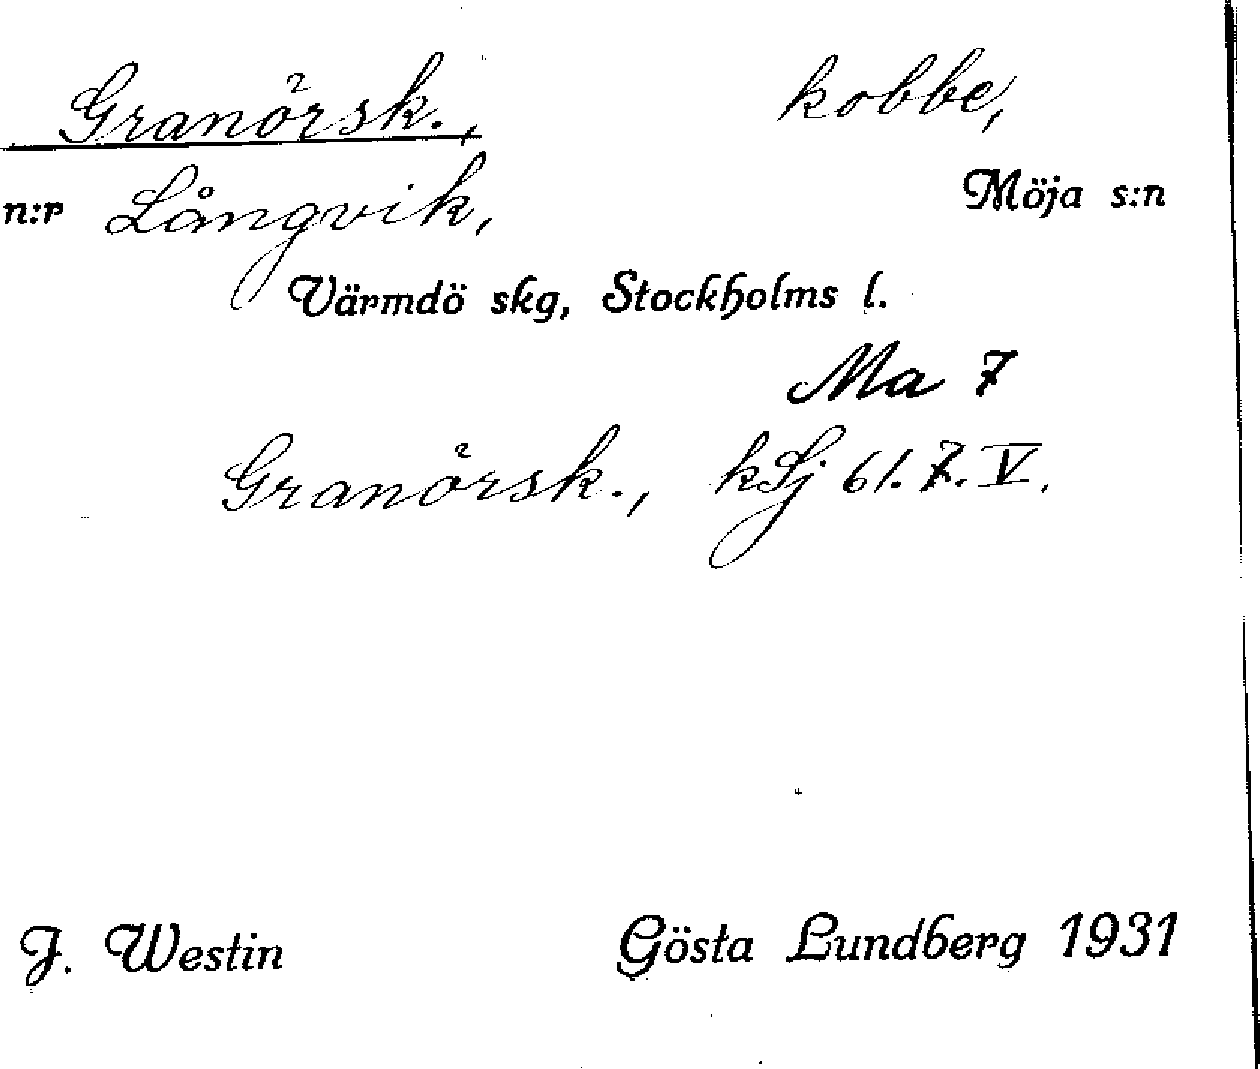 Granörsk., kobbe,
n:r Långvik, Möja s:n
Värmdö skg, Stockholms l.
Ma 7
Granörsk., kSj 61.7.V.
J. Westin Gösta Lundberg 1931